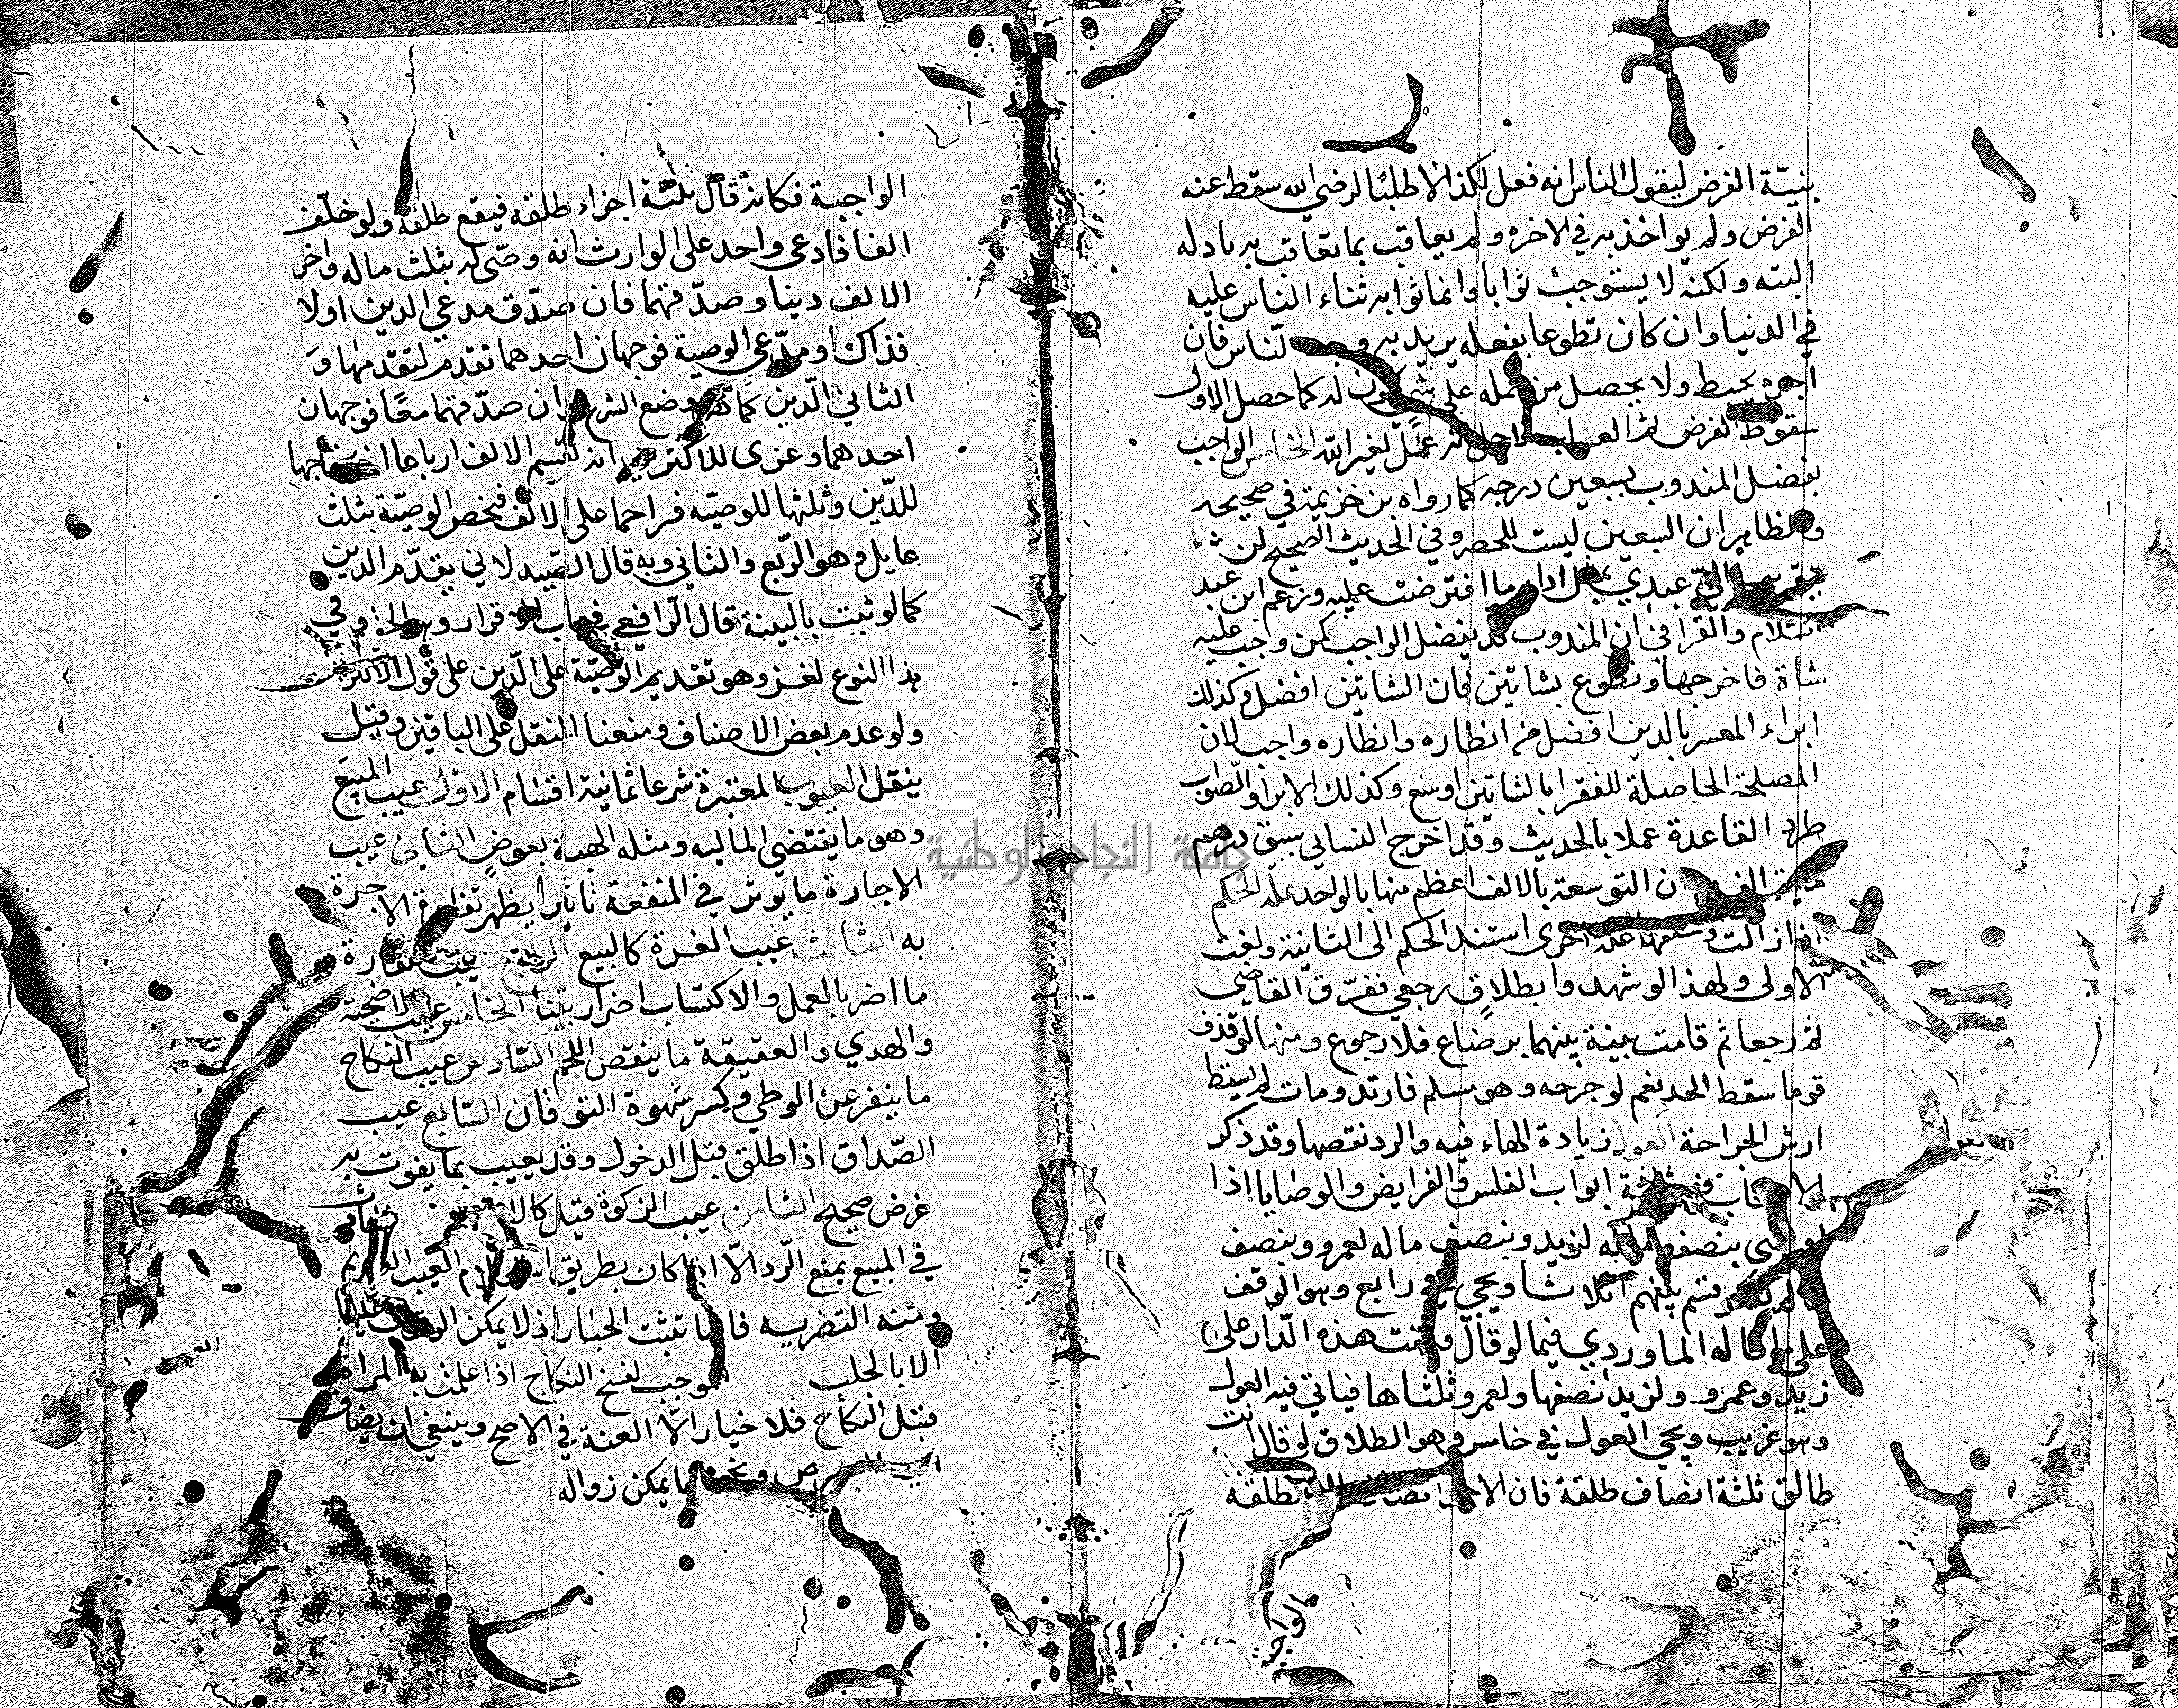 بنيّة الفرض ليقول الناس انه فعل لكذا لا طلبًا لرضى الله سقط عنه
الفرض ولم يواخذ به في الاخره ولم يعاقب بما يعاقب به تاركه
البته ولكنه لا يستوجب ثوابا وانما ثوابه ثناء الناس عليه
في الدنيا وان كان تطوعا بفعله يريد به الناس فان
اجره يحبط ولا يحصل من عمله على شي يكون له كما حصل الاول
سقوط الفرض لانه عمل لغير الله الخامس الواجب
يفضل المندوب بسبعين درجه كما رواه بن خزيمة في صحيحه
والظاهر ان السبعين ليست للحصر وفي الحديث الصحيح لن
يتقرب الي عبدي بمثل اداء ما افترضت عليه وزعم ابن عبد
السلام والقرافي ان المندوب قد يفضل الواجب كمن وجب عليه
شاة فاخرجها وتطوع بشاتين فان الشاتين افضل وكذلك
ابراء المعسر بالدين افضل من انظاره وانظاره واجب لان
المصلحة الحاصلة للفقرا بالشاتين اوسع وكذلك الابرا والصواب
طرد القاعدة عملا بالحديث وقد اخرج النسايي سبق درهم
ماية الف ن التوسعة بالالف اعظم منها بالواحد علة الحكم
اذا زالت علة اخرى استند الحكم الى الثانية ولغت
الاولى ولهذا لو شهدوا بطلاق رجعي ففرق القاضي
ثم رجعا ثم قامت بينة بينهما برضاع فلا رجوع ومنها لو قذف
قوما سقط الحد نعم لو جرحه وهو مسلم فارتد ومات لم يسقط
ارش الجراحة العول زيادة الهاء فيه والرد نقصها وقد ذكر
ثلاثة ابواب الفلس والفرايض والوصايا اذا
بنصف ماله لزيد وبنصف ماله لعمرو وبنصف
قسم بينهم اثلاثا ويجي في رابع وهو الوقف
على ما قاله الماوردي فيما لو قال وقفت هذه الدار على
زيد وعمرو ولزيد نصفها ولعمرو ثلثاها فياتي فيه العول
وهو غريب ويجي العول في خامس وهو الطلاق لو قال انت
طالق ثلثة انصاف طلقة فان الا طلقة
الواجبة
الواجبة فكانه قال ثلثة اجزاء طلقه فيقع طلقة ولو خلّف
الفا فادعى واحد على الوارث انه وصّى له بثلث ماله واخر
الالف دينا وصدّقهما فان صدّق مدعي الدين اولا
فذاك او مدّعي الوصية فوجهان احدهما تقدم لتقدّمها و
الثاني الدين كما هو وضع الشرع وان صدّقهما معًا فوجهان
احدهما وعزى للاكثرين انه يقسم الالف ارباعا
للدّين وثلثها للوصيّه فزاحما على الالف فيخص الوصيّة بثلث
عايل وهو الرّبع والثاني وبه قال الصيدلاني يقدّم الدين
كما لو ثبت بالبينة قال الرافعي في باب الاقرار وهو الحق وفي
هذا النوع لغز وهو تقديم الوصيّة على الدّين على قول الاكثرين
ولو عدم بعض الاصناف ومنعنا النقل على الباقين وقيل
ينقل العيوب المعتبرة شرعا ثمانية اقسام الاوّل عيب المبيع
وهو ما يقتضي الماليه ومثله الهبة بعوض الثاني عيب
الاجارة ما يوثر في المنفعة تاثيرا يظهر تفاوت الاجرة
به الثالث عيب الغرة كالبيع الرابع عيب الكفارة
ما اضر بالعمل والاكتساب اضرارا بيّنا الخامس عيب الاضحية
والهدي والعقيقة ما ينقص اللحم السّادس عيب النكاح
ما ينفر عن الوطي ويكسر شهوة التوقان السّابع عيب
الصّداق اذا طلق قبل الدخول وقد يعيب بما يفوت به
غرض صحيح الثامن عيب الزكوة قيل كالا
في المبيع يمنع الرّد الّا ان كان بطريق استعلام العيب القديم
ومنه التصريه فانها تثبت الخيار اذ لا يمكن الوقوف عليها
الا بالحلب الموجب لفسخ النكاح اذا علمت به المراه
قبل النكاح فلا خيار الّا العنة في الاصح وينبغي ان يضاف
ص ونحوه مما يمكن زواله